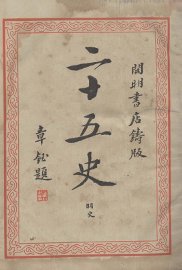 開明書店鑄版
二十五史
明史
章鈺題